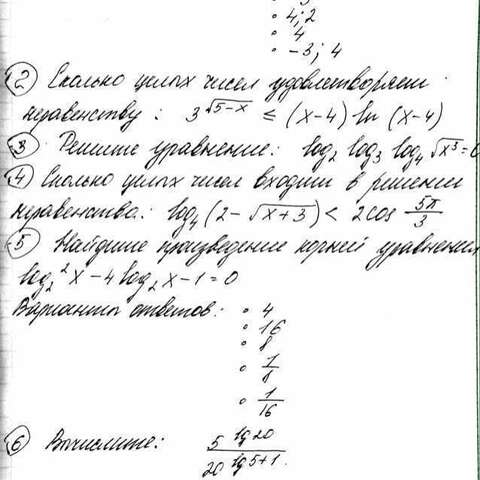 • 4; 2
• 4
• -3; 4
② Сколько целых чисел удовлетворяет
неравенству: 3^√(5-x) ≤ (x-4) ln (x-4)
③ Решите уравнение: log₂ log₃ log₄ √(x³) = 0
④ Сколько целых чисел входит в решение
неравенства: log₄ (2 - √(x+3)) < 2cos 5π/3
⑤ Найдите произведение корней уравнения
log₂² x - 4 log₂ x - 1 = 0
Варианты ответов: • 4
• 16
• 8
• 1/8
• 1/16
⑥ Вычислите: 5^(lg 20) / 20^(lg 5+1).